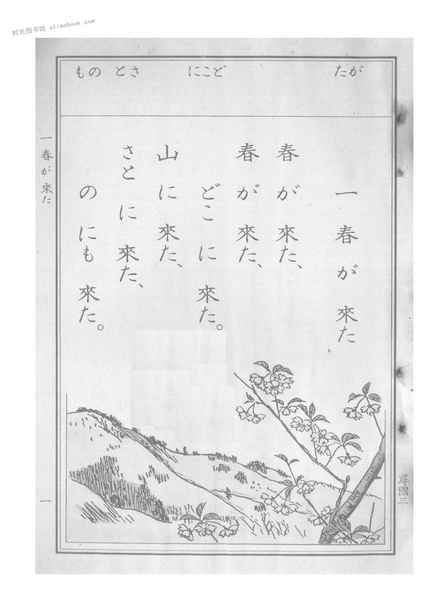 たが
どこに
さと
もの
一 春が來た
春が來た、
春が來た、
どこに來た。
山に來た、
さとに來た、
のにも來た。
一 春が來た
一